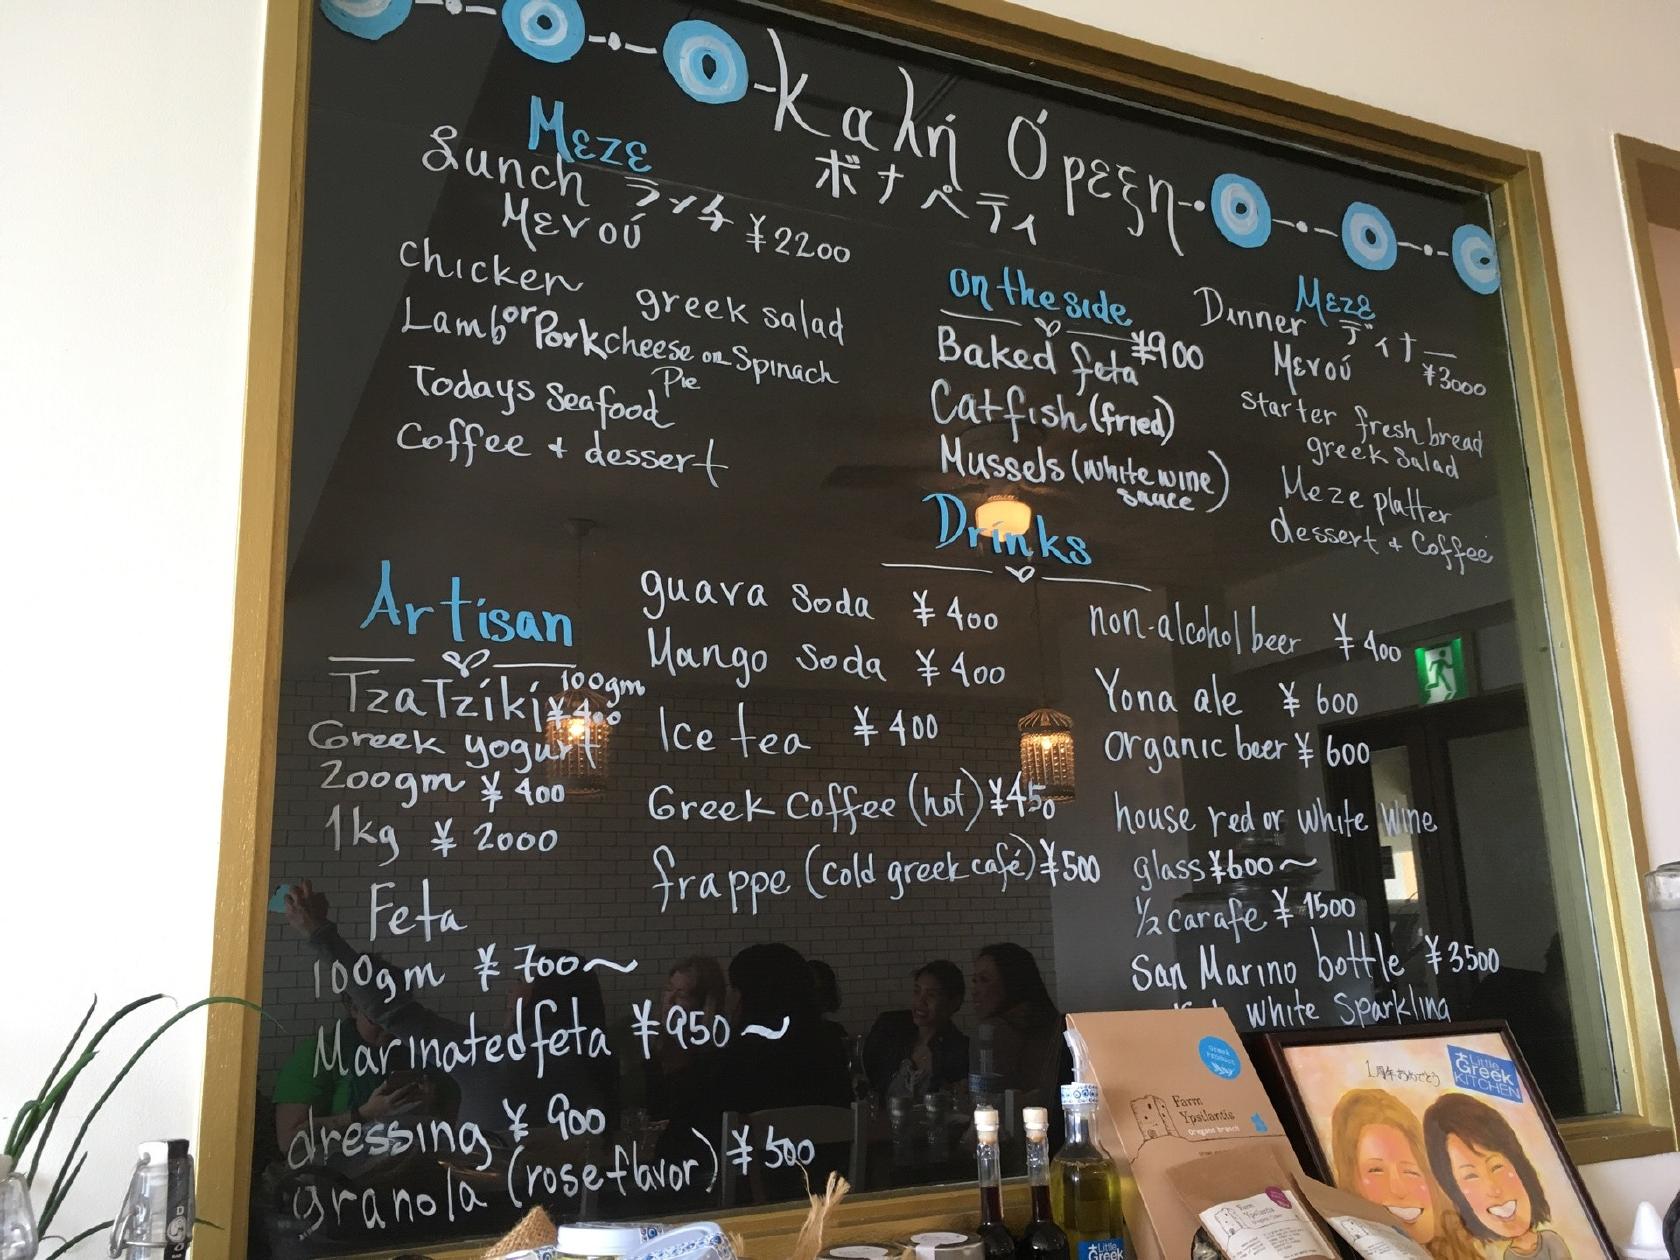 Καλή Όρεξη
ボナペティ
Mεzε
Lunch ランチ
Μενού ¥2200
chicken greek salad
Lamb or Pork cheese or Spinach Pie
Todays Seafood
Coffee + dessert
on the side
Baked feta ¥900
Catfish (fried)
Mussels (white wine sauce)
Mεzε
Dinner ディナー
Μενού ¥3000
starter fresh bread
greek Salad
Meze platter
dessert + Coffee
Artisan
TzaTzíkí 100gm ¥400
Greek yogurt
200gm ¥400
1kg ¥2000
Feta
100gm ¥700〜
Marinated feta ¥950〜
dressing ¥900
granola (rose flavor) ¥500
Drinks
guava Soda ¥400
Mango Soda ¥400
Ice tea ¥400
Greek Coffee (hot) ¥450
frappe (cold greek café) ¥500
non-alcohol beer ¥400
Yona ale ¥600
organic beer ¥600
house red or white wine
glass ¥600〜
1/2 carafe ¥1500
San Marino bottle ¥3500
white Sparkling
Farm
Ypsilantis
Oregano branch
1周年おめでとう
Little
Greek
KITCHEN
Farm
Ypsilantis
Little
Greek